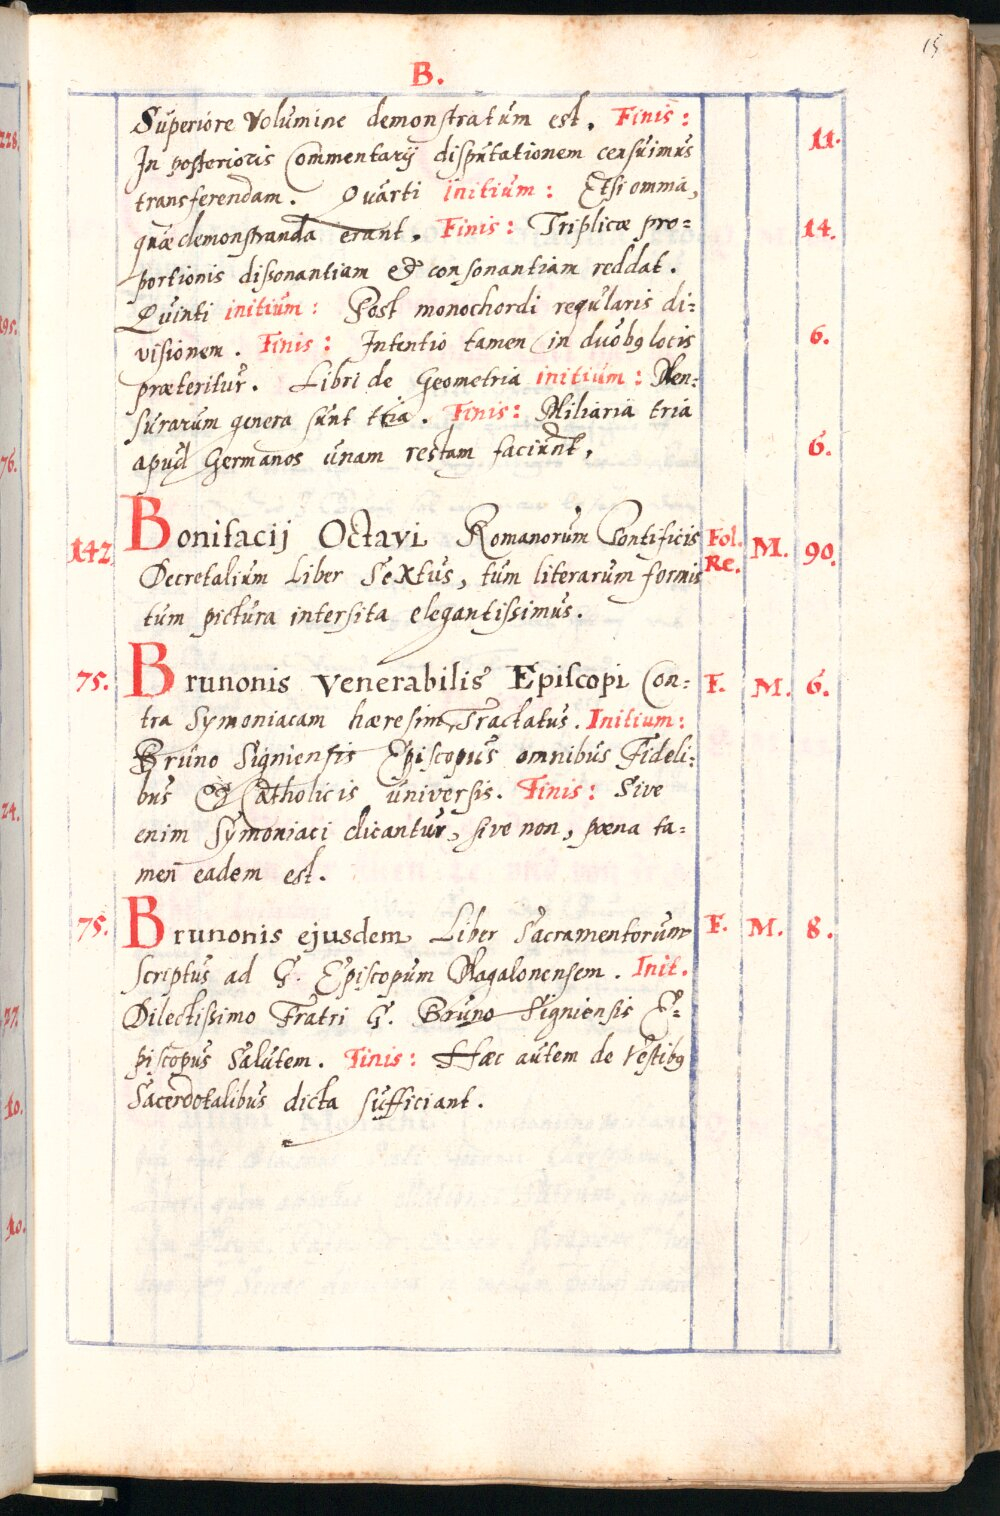 15
B.
Superiore Volumine demonstratum est. Finis: 11.
In posterioris Commentarij disputationem censuimus
transferendam. Quarti initium: Etsi omnia,
quæ demonstranda erant. Finis: Triplicæ pro= 14.
portionis dissonantiam et consonantiam reddat.
Quinti initium: Post monochordi regularis di=
visionem. Finis: Intentio tamen in duobꝯ locis 6.
præteritur. Libri de Geometria initium: Men=
surarum genera sunt tria. Finis: Miliaria tria
apud Germanos unam restam faciunt. 6.
142. Bonifacij Octavi Romanorum Pontificis Fol. Re. M. 90.
Decretalium Liber Sextus, tum literarum formis
tum pictura intersita elegantissimus.
75. Brunonis Venerabilis Episcopi Con= F. M. 6.
tra Symoniacam hæresim Tractatus. Initium:
Bruno Signiensis Episcopus omnibus Fideli=
bus et Catholicis universis. Finis: Sive
enim Symoniaci dicantur, sive non, pœna ta=
men eadem est.
75. Brunonis ejusdem Liber Sacramentorum F. M. 8.
scriptus ad G. Episcopum Magalonensem. Init.
Dilectissimo Fratri G. Bruno Signiensis E=
piscopus Salutem. Finis: Hæc autem de Vestibꝯ
Sacerdotalibus dicta sufficiant.
228.
195.
76.
24.
27.
10.
10.